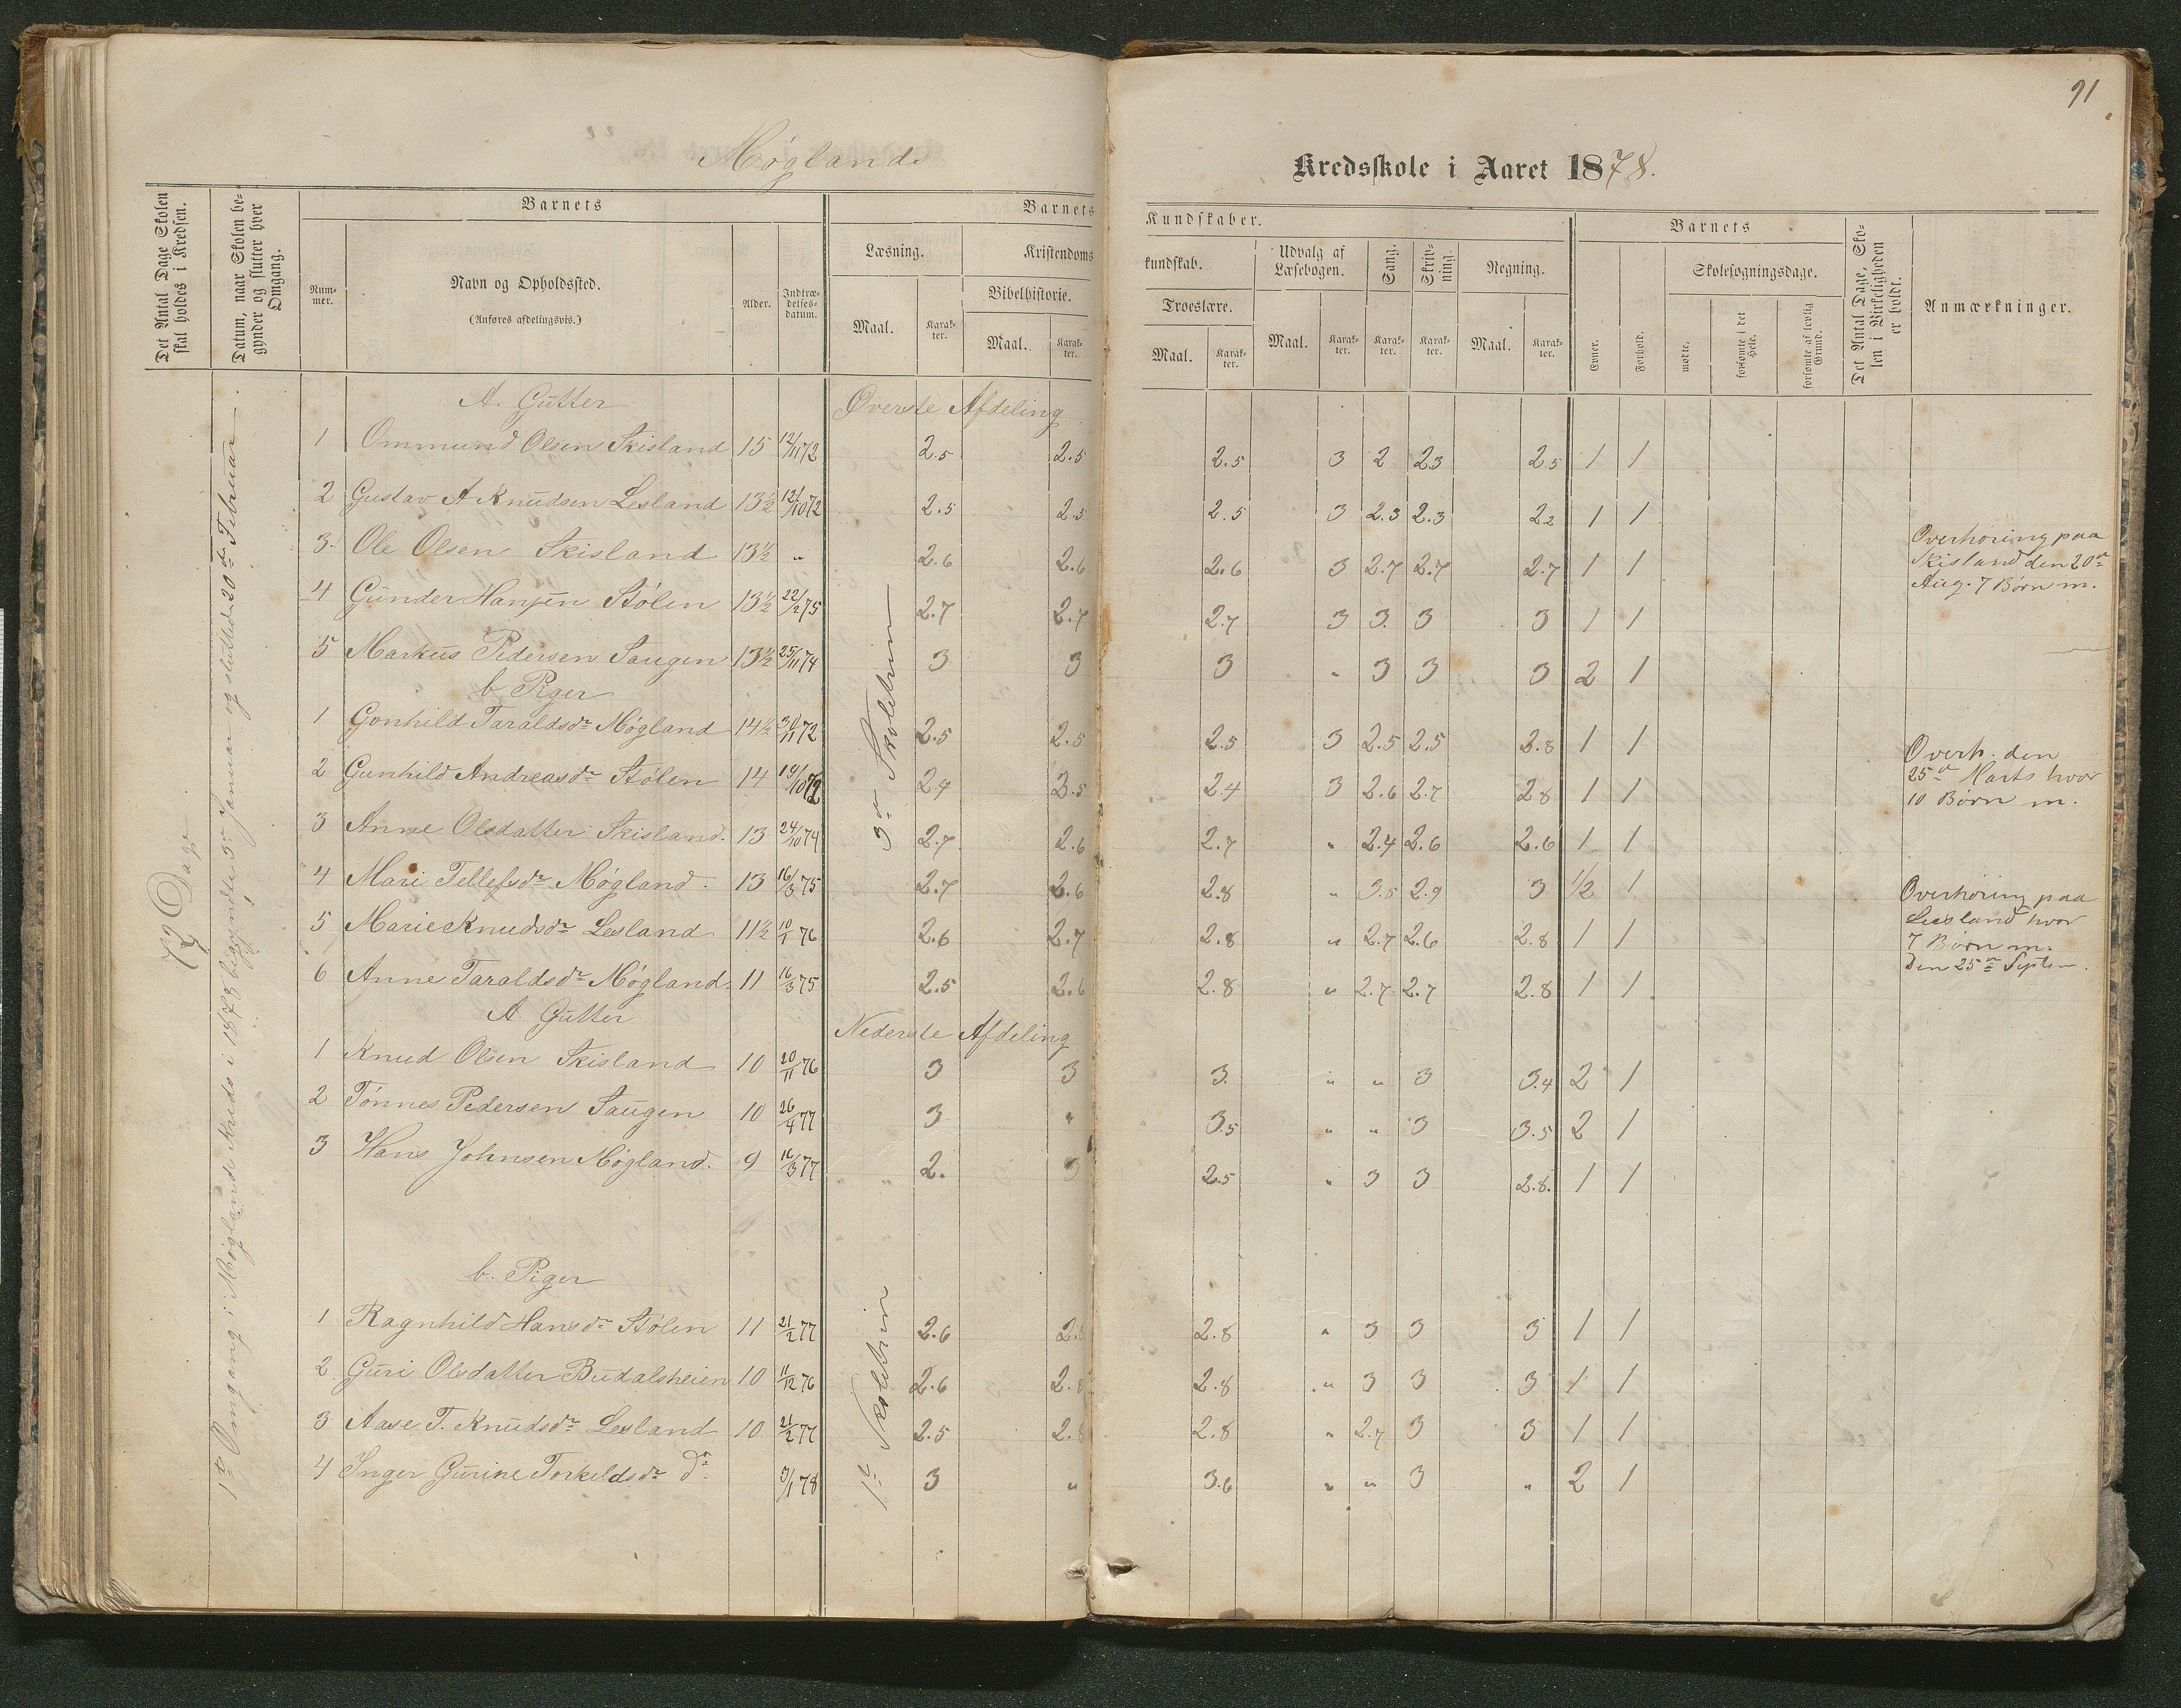 91
Møglands Kredsskole i Aaret 1878.
Det Antal Dage Skolen skal holdes i Kredsen.
Datum, naar Skolen begynder og slutter hver Omgang.
Barnets
Nummer.
Navn og Opholdssted.
(Anføres afdelingsvis.)
Alder.
Indtrædelsesdatum.
Barnets Kundskaber.
Læsning.
Maal.
Karakter.
Kristendomskundskab.
Bibelhistorie.
Maal.
Karakter.
Troeslære.
Maal.
Karakter.
Udvalg af Læsebogen.
Maal.
Karakter.
Sang.
Karakter.
Skrivning.
Karakter.
Regning.
Maal.
Karakter.
Barnets
Evner.
Forhold.
Skolesøgningsdage.
mødte.
forsømte i det Hele.
forsømte af lovlig Grund.
Det Antal Dage, Skolen i Virkeligheden er holdt.
Anmærkninger.
72 Dage
1ste Omgang i Møglands Kreds i 1878 begyndte 3die Januar og sluttede 20de Februar.
A. Gutter Øverste Afdeling
3die Skoletrin
1 Ommund Olsen Skisland 15 12/11 72 2.5 2.5 2.5 3 2 2.3 2.5 1 1
2 Gustav A Knudsen Lesland 13½ 12/10 72 2.5 2.5 2.5 3 2.3 2.3 2.2 1 1
3. Ole Olsen Skisland 13½ " 2.6 2.6 2.6 3 2.7 2.7 2.7 1 1
4 Gunder Hansen Stølen 13½ 22/2 75 2.7 2.7 2.7 3 3. 3 3 1 1
5 Markus Pedersen Saugen 13½ 25/11 74 3 3 3 " 3 3 3 2 1
b Piger
1 Gonhild Taraldsdr Møgland 14½ 30/11 72 2.5 2.5 2.5 3 2.5 2.5 2.8 1 1
2 Gunhild Andreasdr Stølen 14 19/10 72 2.4 2.5 2.4 3 2.6 2.7 2.8 1 1
3 Anne Olsdatter Skisland. 13 24/10 74 2.7 2.6 2.7 " 2.4 2.6 2.6 1 1
4 Mari Tellefsdr Møgland. 13 16/3 75 2.7 2.6 2.8 " 3.5 2.9 3 1/2 1
5 Marie Knudsdr Lesland 11½ 10/1 76 2.6 2.7 2.8 " 2.7 2.6 2.8 1 1
6 Anne Taraldsdr Møgland. 11 16/3 75 2.5 2.6 2.8 " 2.7 2.7 2.8 1 1
A. Gutter Nederste Afdeling
1 Knud Olsen Skisland 10 20/11 76 3 3 3. " " 3 3.4 2 1
2 Tønnes Pedersen Saugen 10 26/4 77 3 " 3.5 " " 3 3.5 2 1
3 Hans Johnsen Møgland. 9 16/3 77 2. 3 2.5 " 3 3 2.8. 1 1
b. Piger
1ste Skoletrin
1 Ragnhild Hansdr Stølen 11 21/2 77 2.6 2.8 2.8 " 3 3 3 1 1
2 Guri Olsdatter Budalsheien 10 11/12 76 2.6 2.8 2.8 " 3 3 3 1 1
3 Aase T. Knudsdr Lesland 10 21/2 77 2.5 2.8 2.8 " 2.7 3 3 1 1
4 Inger Gurine Torkeldsdr do 3/1 78 3 " 3.6 " " 3 " 2 1
Overhøring paa
Skisland den 20de
Aug. 7 Børn m.
Overh. den
25de Marts hvor
10 Børn m.
Overhøring paa
Lesland hvor
7 Børn m.
Den 25de Septem.